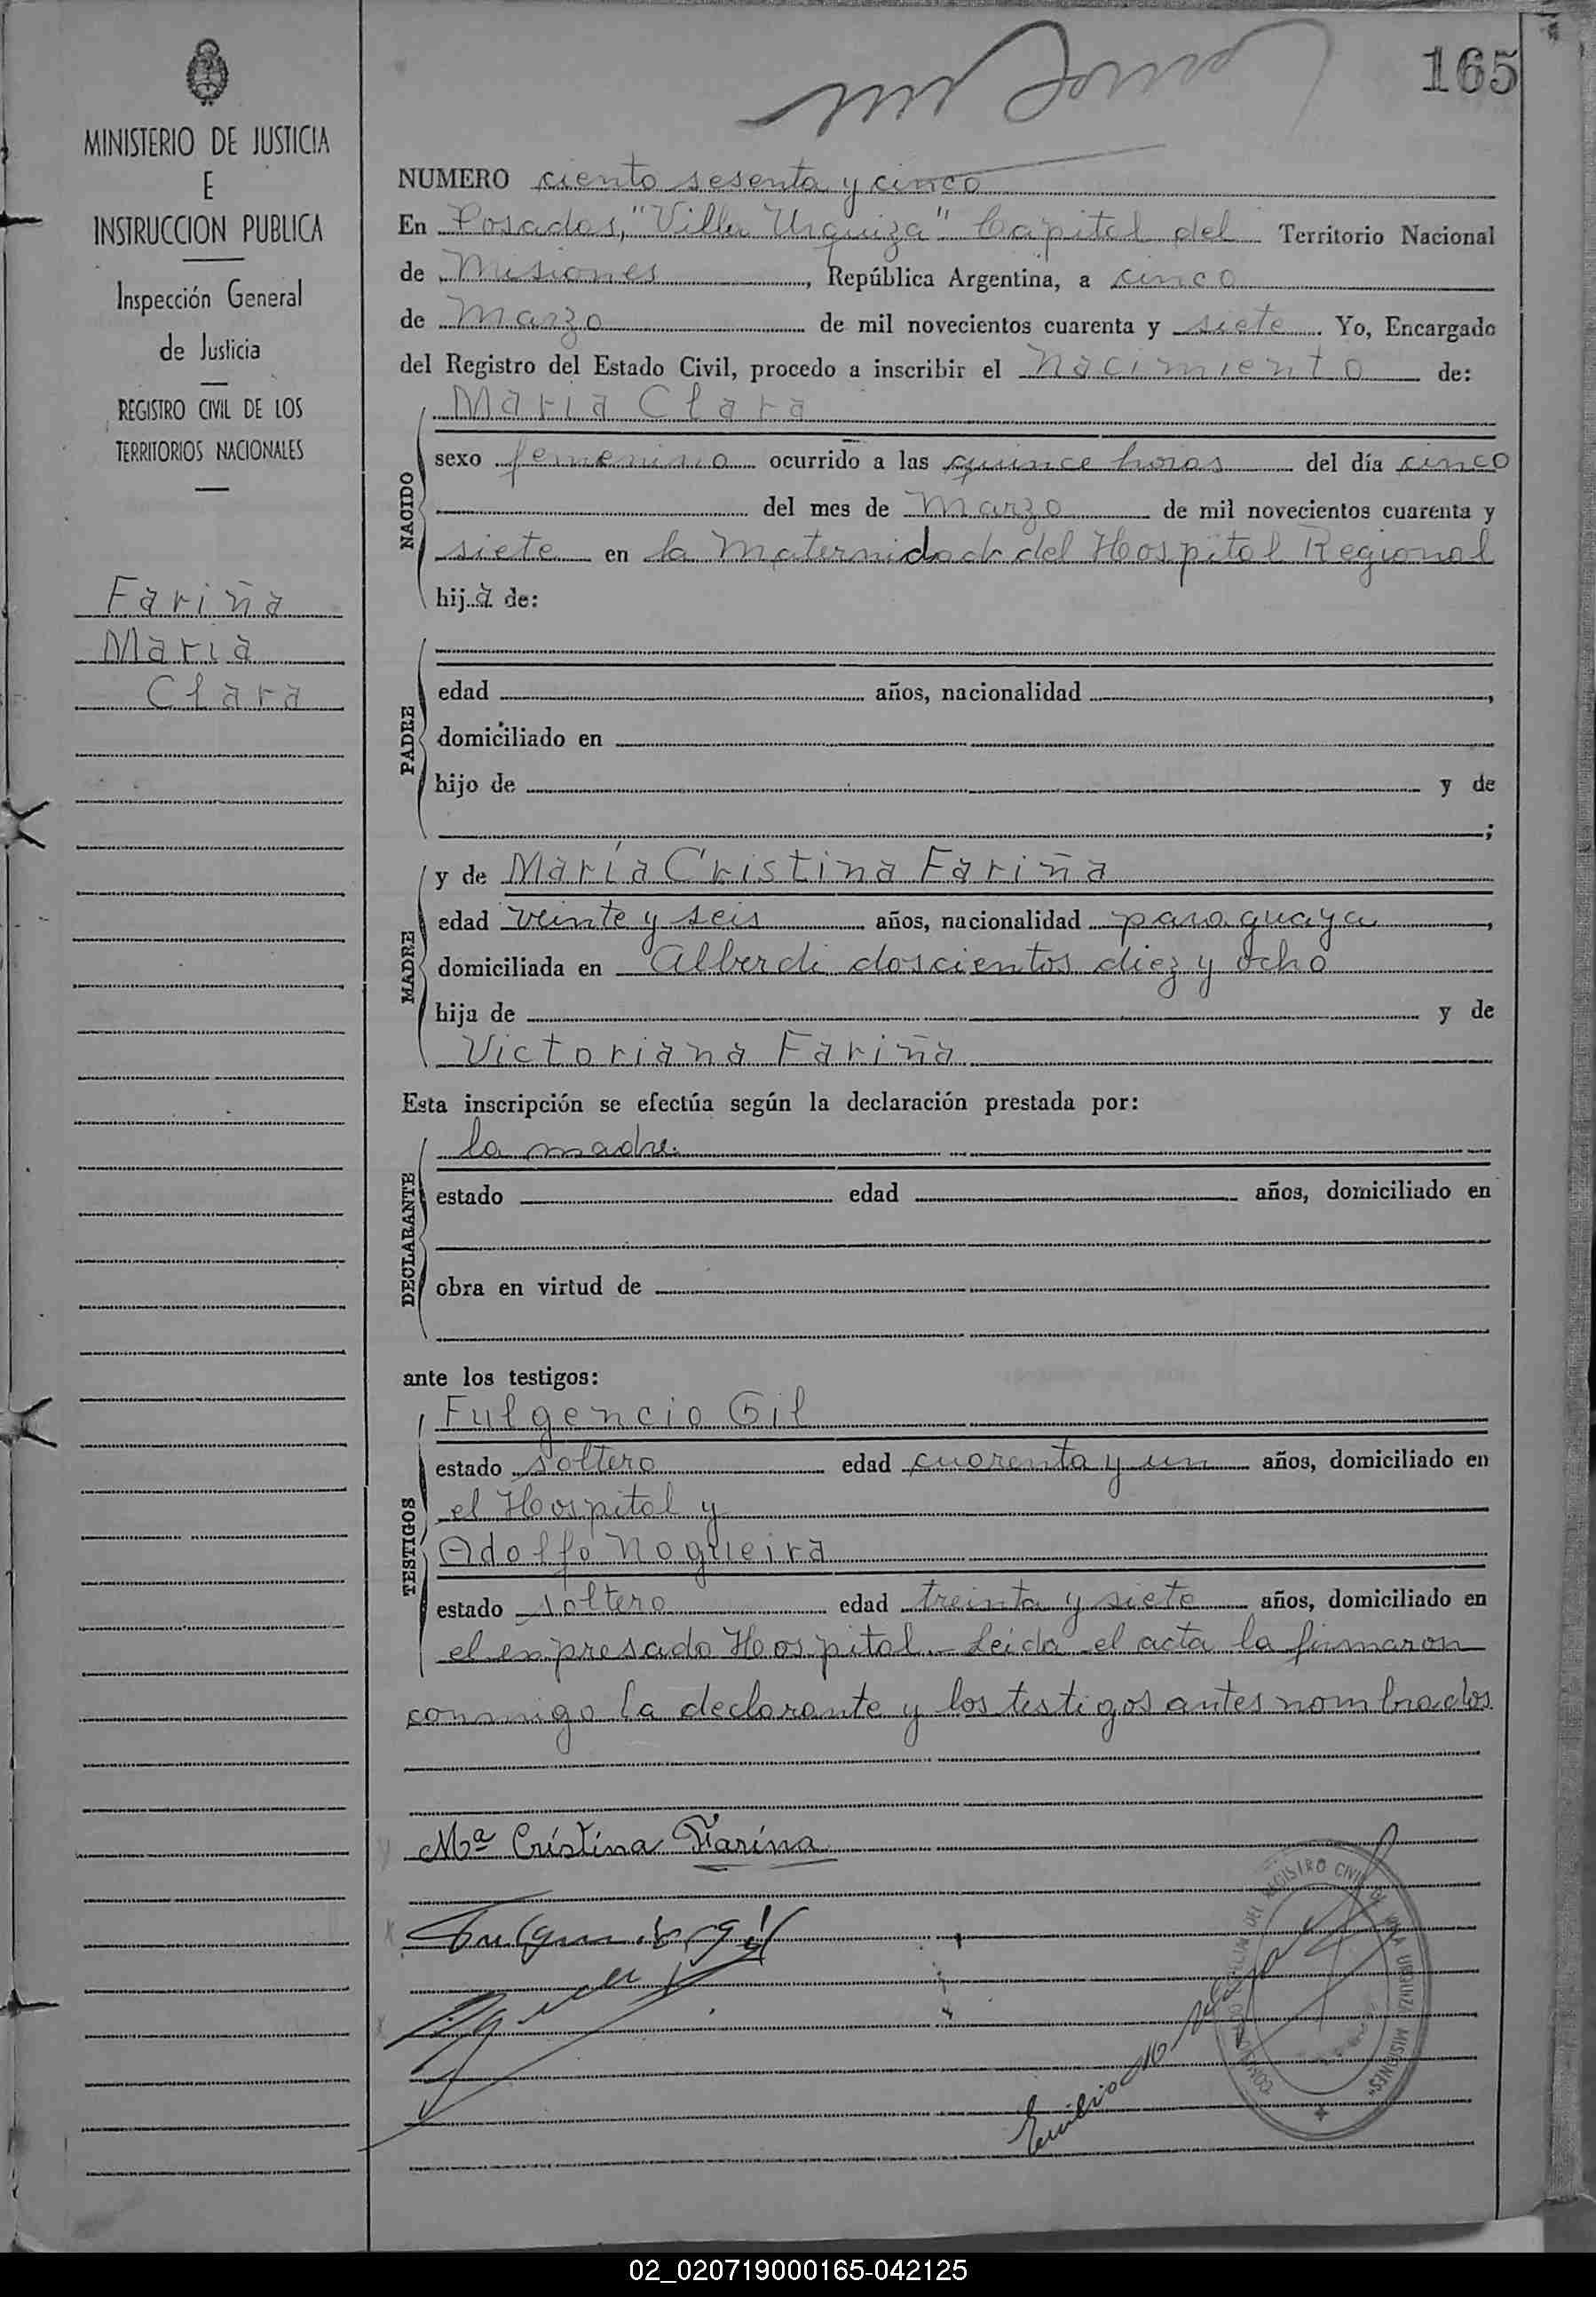 165
MINISTERIO DE JUSTICIA
E
INSTRUCCION PUBLICA
Inspección General
de Justicia
REGISTRO CIVIL DE LOS
TERRITORIOS NACIONALES
Fariña
Maria
Clara
NUMERO ciento sesenta y cinco
En Posadas, "Villa Urquiza" Capital del Territorio Nacional
de Misiones, República Argentina, a cinco
de Marzo de mil novecientos cuarenta y siete. Yo, Encargado
del Registro del Estado Civil, procedo a inscribir el nacimiento de:
NACIDO
Maria Clara
sexo femenino ocurrido a las quince horas del día cinco
del mes de Marzo de mil novecientos cuarenta y
siete en la Maternidad del Hospital Regional
hija de:
PADRE
edad años, nacionalidad ,
domiciliado en
hijo de y de
;
MADRE
y de María Cristina Fariña
edad veinte y seis años, nacionalidad paraguaya,
domiciliada en Alberdi doscientos diez y ocho
hija de y de
Victoriana Fariña
Esta inscripción se efectúa según la declaración prestada por:
DECLARANTE
la madre.
estado edad años, domiciliado en
obra en virtud de
ante los testigos:
TESTIGOS
Fulgencio Gil
estado soltero edad cuarenta y un años, domiciliado en
el Hospital y
Adolfo Nogueira
estado soltero edad treinta y siete años, domiciliado en
el expresado Hospital. Leida el acta la firmaron
conmigo la declarante y los testigos antes nombrados.
Mª Cristina Farina
Emilio
DEL REGISTRO CIVIL DE VILLA URQUIZA MISIONES
02_020719000165-042125